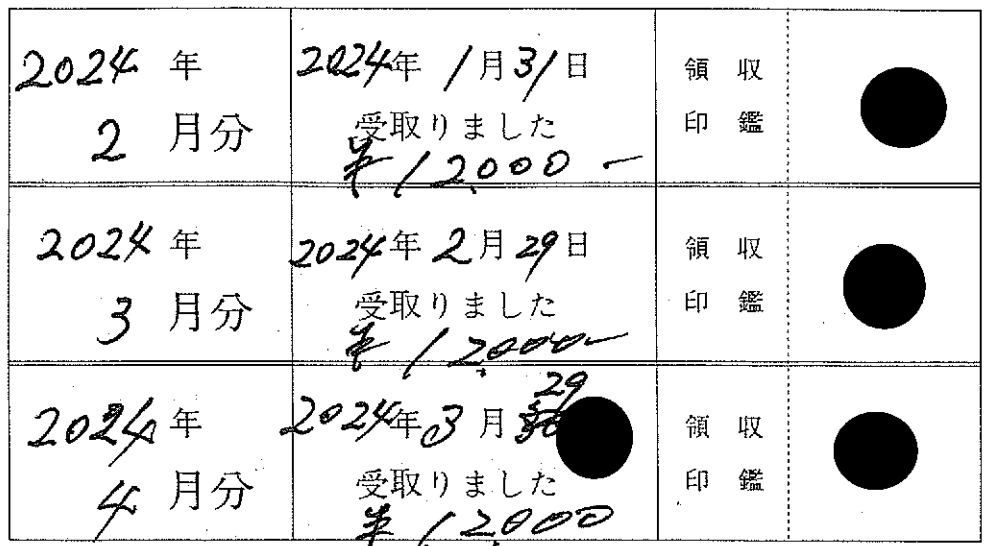 2024年
2月分
2024年1月31日
受取りました
¥12,000-
領収
印鑑
2024年
3月分
2024年2月29日
受取りました
¥12,000-
領収
印鑑
2024年
4月分
29
2024年3月
受取りました
¥12,000
領収
印鑑